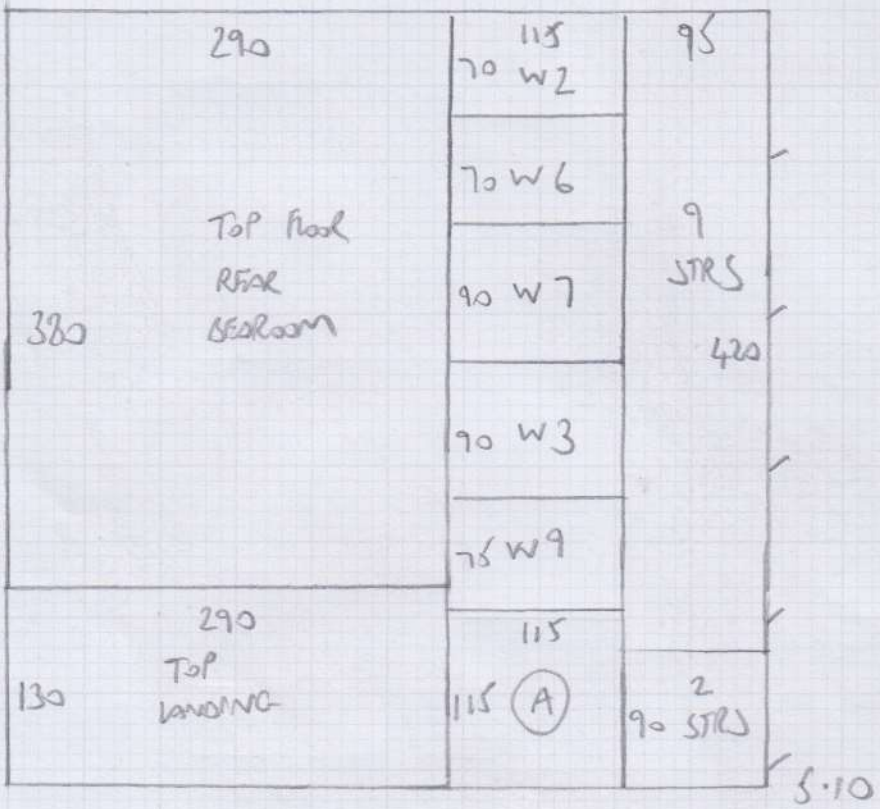 290
TOP FLOOR
REAR
BEDROOM
380
290
TOP
LANDING
130
115
70 W2
70 W6
90 W7
90 W3
75 W9
115
115 A
95
9
STRS
420
2
90 STRS
5.10